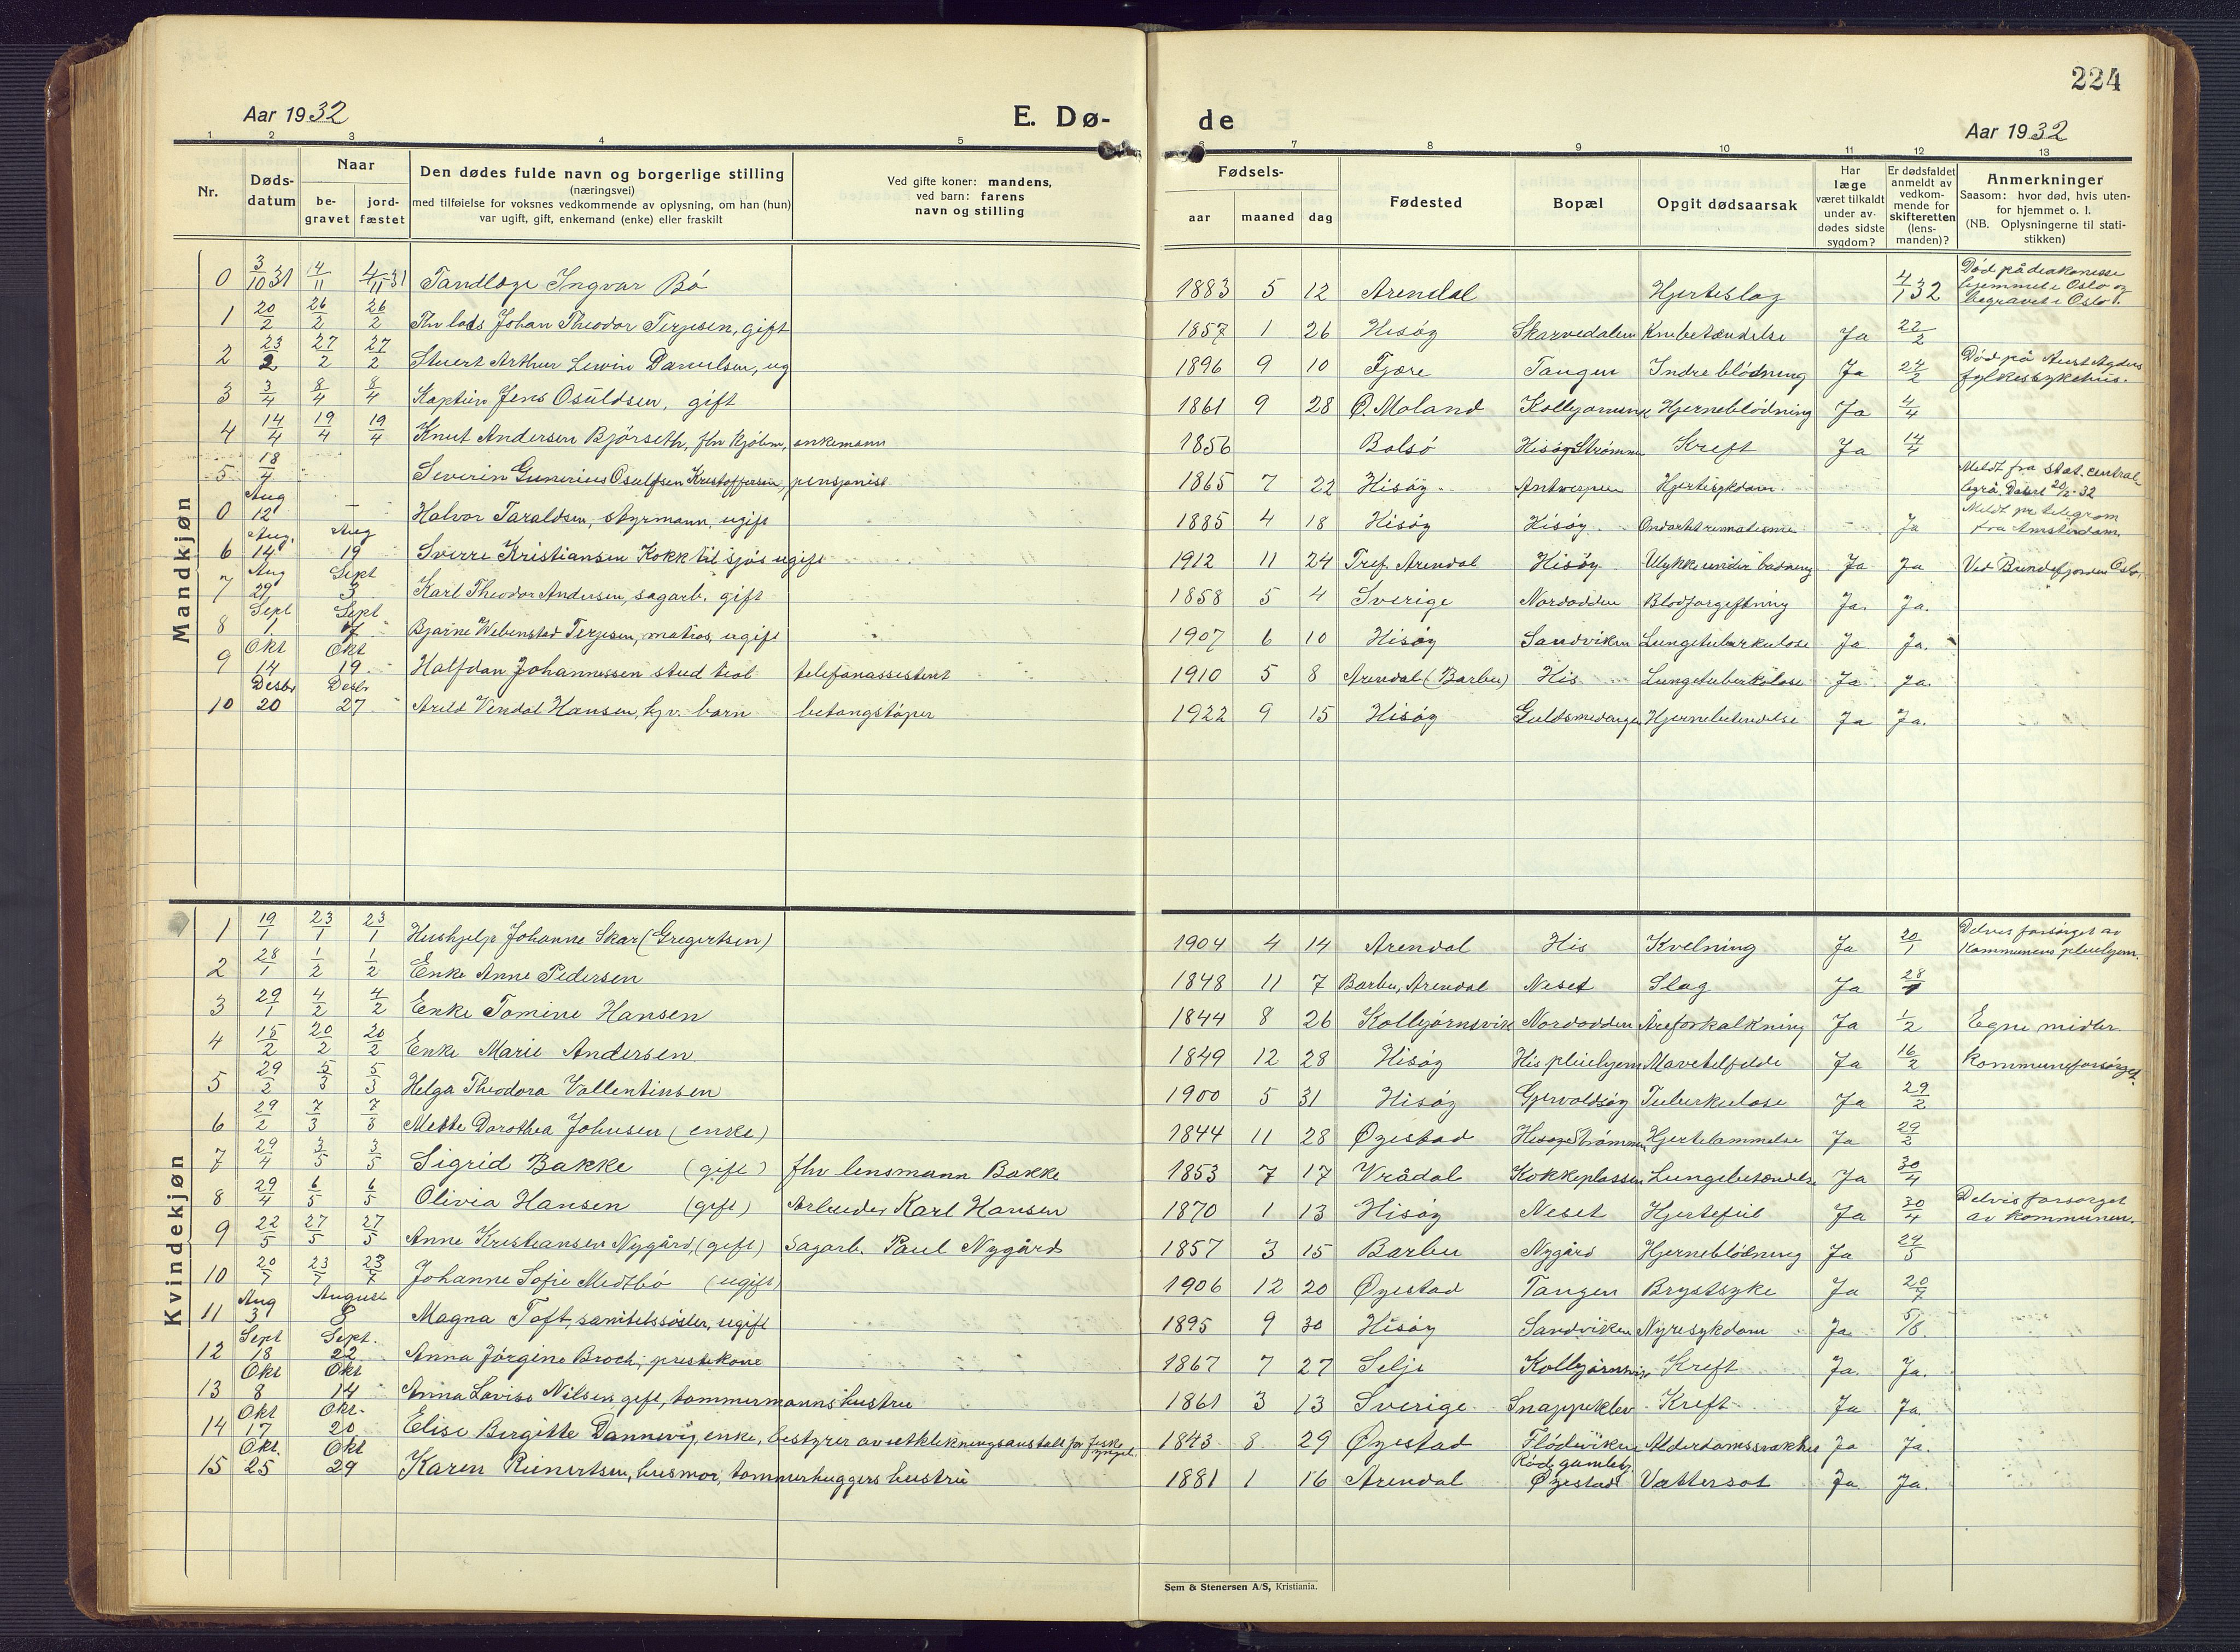 224
Aar 1932
E. Dø-
de
Aar 1932
1 2 3 4 5 6 7 8 9 10 11 12 13
Nr.
Døds-
datum
Naar
be-
gravet
jord-
fæstet
Den dødes fulde navn og borgerlige stilling
(næringsvei)
med tilføielse for voksnes vedkommende av oplysning, om han (hun)
var ugift, gift, enkemand (enke) eller fraskilt
Ved gifte koner: mandens,
ved barn: farens
navn og stilling
Fødsels-
aar maaned dag
Fødested
Bopæl
Opgit dødsaarsak
Har
læge
været tilkaldt
under av-
dødes sidste
sygdom?
Er dødsfaldet
anmeldt av
vedkom-
mende for
skifteretten
(lens-
manden)?
Anmerkninger
Saasom: hvor død, hvis uten-
for hjemmet o. l.
(NB. Oplysningerne til stati-
stikken)
Mandkjøn
0 3/10 31 4/11 4/11 31 Tandlæge Ingvar Bö 1883 5 12 Arendal Hjerteslag 4/1 32 Död på diakonisse hjemmet i Oslo og begravet i Oslo.
1 20/2 26/2 26/2 Fhv lods Johan Theodor Terjesen, gift 1857 1 26 Hisöy Skarvedalen Knebetændelse Ja 22/2
2 23/2 27/2 27/2 Stuert Arthur Lewin Danielsen, ug 1896 9 10 Fjære Tangen Indre blödning Ja 24/2 Död på Aust Agders fylkessykehus.
3 3/4 8/4 8/4 Kaptein Jens Osuldsen, gift 1861 9 28 Ö. Moland Hjerneblödning Ja 4/4
4 14/4 19/4 19/4 Knut Andersen Björseth, fhv kjöbm, enkemann 1856 Bolsö Hisöy Strömmen Kreft Ja 14/4
5 18/4 Severin Gunerius Osulfsen Kristoffersen, pensjonist 1865 7 22 Hisöy Antwerpen Hjertesykdom Meldt fra stat. central-
byrå. Datert 20/2-32
0 Aug 12 — Halvor Taraldsen, styrmann, ugift 1885 4 18 Hisöy Hisöy Ondartet reumatisme - Ja Meldt pr telegram fra Amsterdam
6 Aug. 14 Aug 19 Sverre Kristiansen Kokk til sjös ugift 1912 11 24 Tref. Arendal Hisöy Ulykke under badning Ja Ja Ved Bundefjorden Oslo
7 Aug 29 Sept 3 Karl Theodor Andersen, sagarb. gift 1858 5 4 Sverige Nordodden Blodforgiftning Ja. Ja.
8 Sept 1. Sept 7 Bjarne Webenstad Terjesen, matros, ugift 1907 6 10 Hisöy Sandviken Lungetuberkulose Ja Ja.
9 Okt 14 Okt 19 Halfdan Johannessen stud teol telefonassistent 1910 5 8 Arendal (Barbu) His Lungetuberkulose Ja Ja.
10 Desbr 20 Desbr 27 Arild Vendal Hansen, hjv. barn betongstöper 1922 9 15 Hisöy Hjernebetendelse Ja Ja.
Kvindekjøn
1 19/1 23/1 23/1 Hushjelp Johanne Skar (Gregertsen) 1904 4 14 Arendal His Kvelning Ja 20/1 Delvis forsörget av
kommunens pleiehjem.
2 28/1 1/2 1/2 Enke Anne Pedersen 1848 11 7 Barbu, Arendal Neset Slag Ja 28/1
3 29/1 4/2 4/2 Enke Tomine Hansen 1844 8 26 Kolbjörnsvik Nordodden Åreforkalkning Ja 1/2 Egne midler.
4 15/2 20/2 20/2 Enke Marie Andersen 1849 12 28 Hisöy His pleiehjem Mavetilfelde Ja 16/2 Kommuneforsörget.
5 29/2 5/3 5/3 Helga Theodora Vallentinsen 1900 5 31 Hisöy Gjervoldsöy Tuberkulose Ja 29/2
6 29/2 7/3 7/3 Mette Dorothea Johnsen (enke) 1844 11 28 Öyestad Hisöy Strömmen Hjertelammelse Ja 29/2
7 29/4 3/5 3/5 Sigrid Bakke (gift) fhv lensmann Bakke 1853 7 17 Vrådal Kokkeplassen Lungebetændelse Ja 30/4
8 29/4 6/5 6/5 Olivia Hansen (gift) Arbeider Karl Hansen 1870 1 13 Hisöy Neset Hjertefeil Ja 30/4 Delvis forsorget
av kommunen.
9 22/5 27/5 27/5 Anne Kristiansen Nygård, (gift) Sagarb. Paul Nygård 1857 3 15 Barbu Nygård Hjerneblödning Ja 24/5
10 20/7 23/7 23/7 Johanne Sofie Medtbö (ugift) 1906 12 20 Öyestad Tangen Brystsyke Ja 20/7
11 Aug 3 August 8 Magna Toft, sanitetssöster, ugift 1895 9 30 Hisöy Sandviken Nyresykdom Ja 5/8.
12 Sept 18 Sept. 22 Anna Jörgine Broch, prestekone 1867 7 27 Selje Kolbjörnsvik Kreft Ja. Ja.
13 Okt 8 Okt 14 Anna Lovise Nilsen, gift, tommermannshustru 1861 3 13 Sverige Snappeklev Kreft Ja Ja.
14 Okt 17 Okt. 20 Elise Birgitte Dannevig, enke, bestyrer av utklekningsanstalt for fiske 1843 8 29 Öyestad Flödeviken Alderdomssvakhet Ja Ja.
15 Okt. 25 Okt 29 Karen Reinertsen, husmor, tommerhuggers hustru 1881 1 16 Arendal Röd gamlehj Öyestad Vattersot Ja Ja.
Sem & Stenersen A/S, Kristiania.